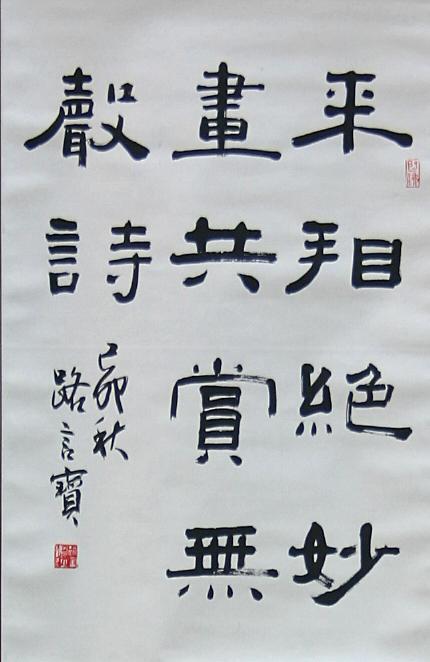 来相絕妙
畫共賞無
聲詩
己卯秋
路言寶